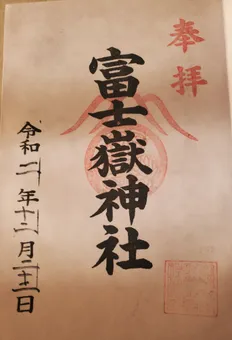 奉拝
富士嶽神社
令和二年十二月二十三日